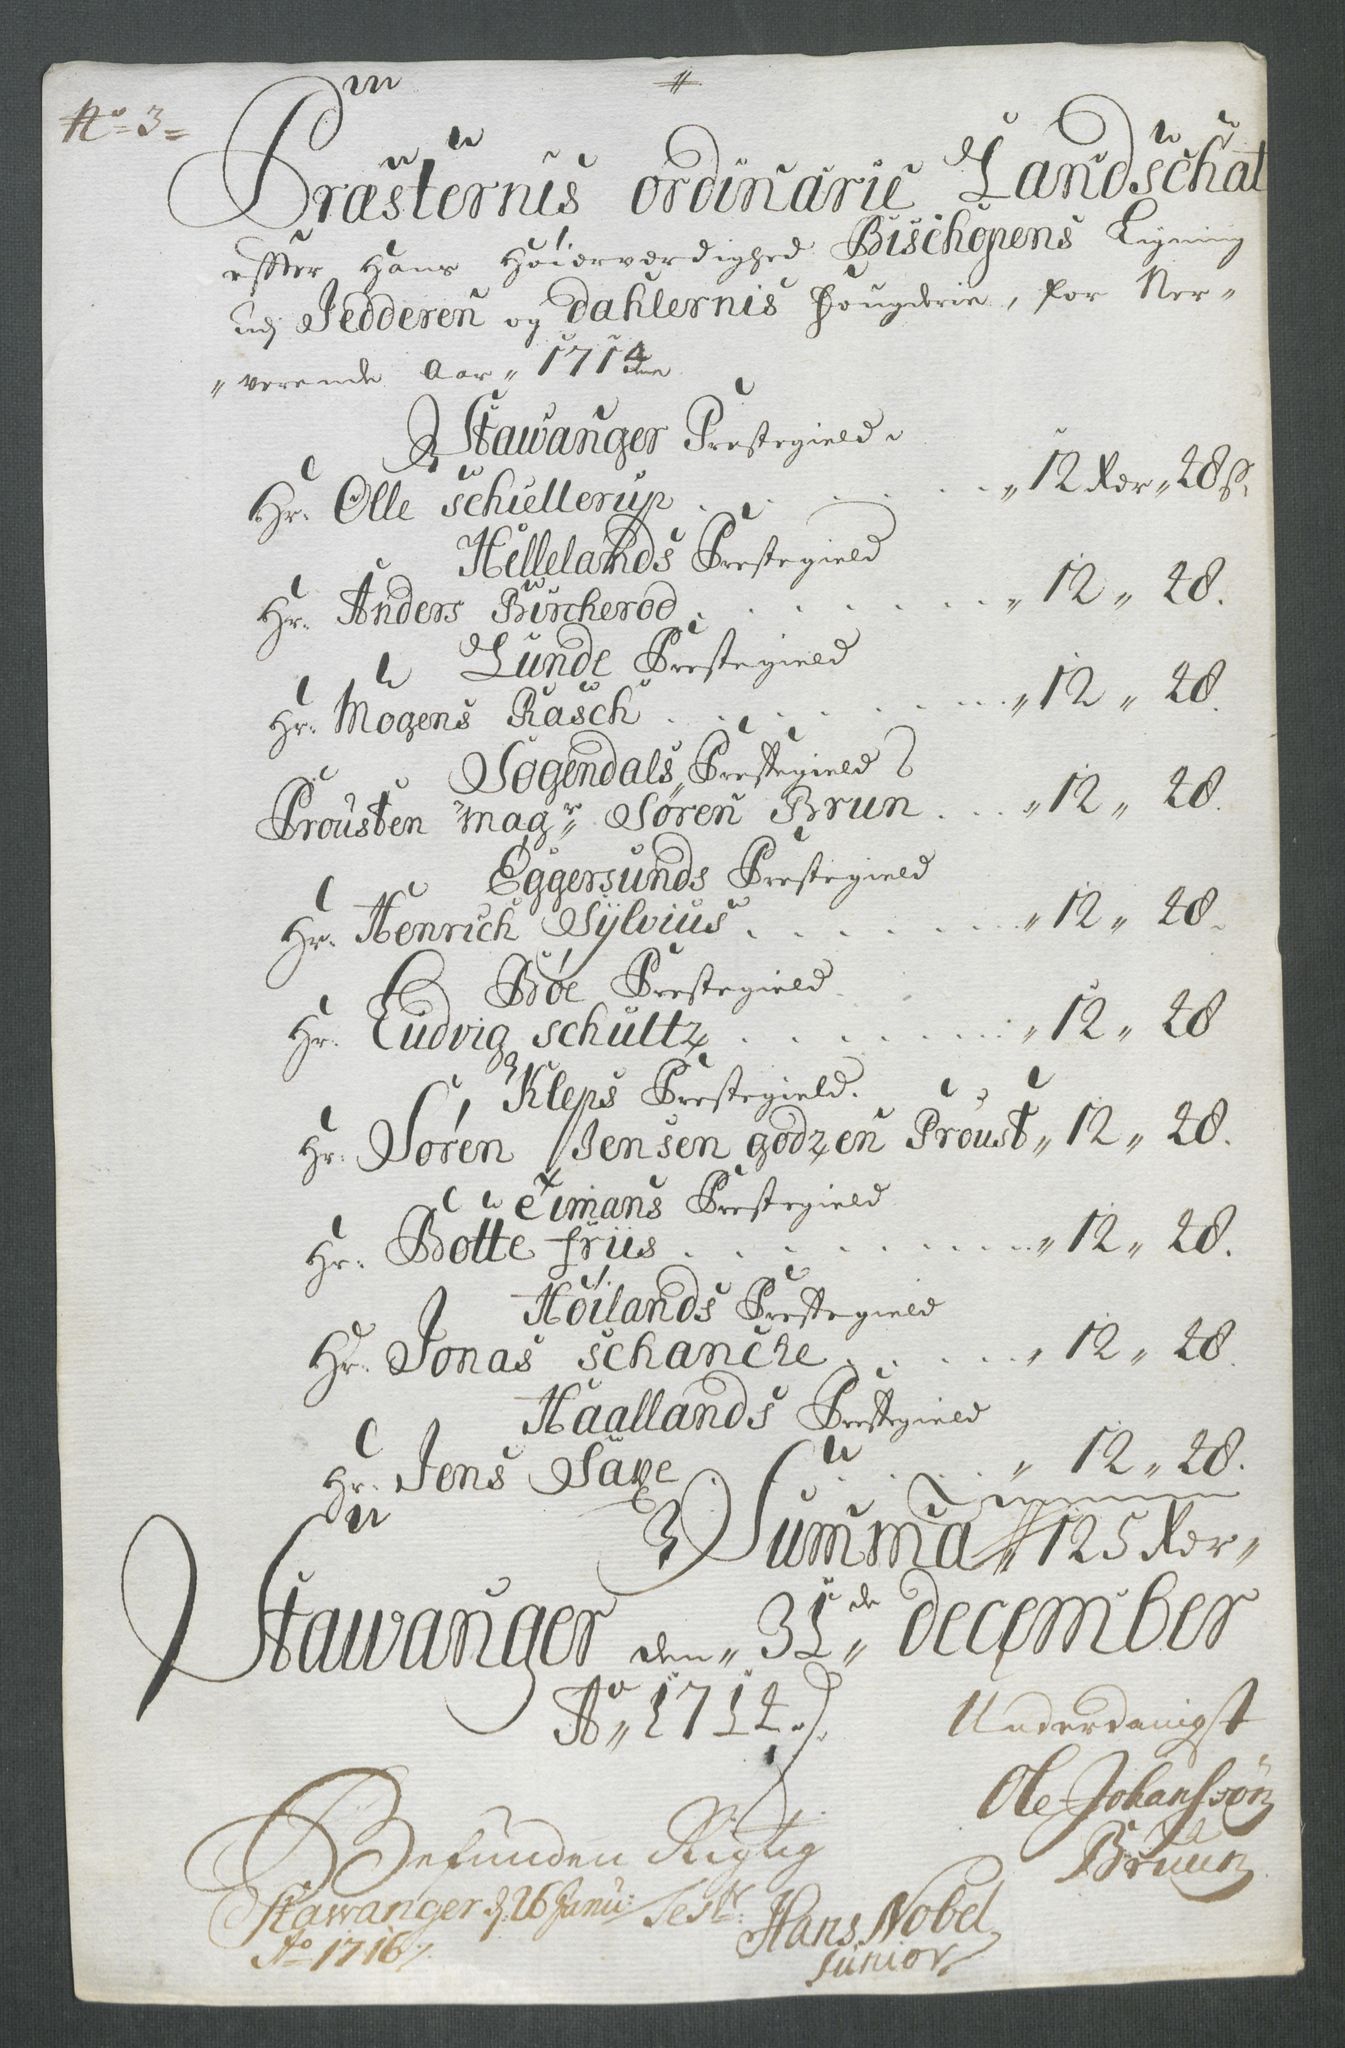 No 3
Præsternis ordinarie Landschat
effter Hans Høiærværdighed Bischopens Ligning
udj Jedderen og Dahlernis Fougderie, for Ner-
verende Aar 1714
Stawanger Prestegield
Hr. Olle Schiellerup . . . . . . 12 Rdr 28 s.
Hellelands Prestegield
Hr. Anders Bircherod . . . . . . 12 " 28.
Lunde Prestegield
Hr. Mogens Rasch . . . . . . . 12 " 28.
Sogendals Prestegield
Prousten Magr. Søren Brun . . . 12 " 28.
Eggersunds Prestegield
Hr. Henrich Sylvius . . . . . . 12 " 28.
Bøe Prestegield
Hr. Ludvig Schultz . . . . . . 12 " 28
Kleps Prestegield.
Hr. Søren Jensen Godzen Proust " 12 " 28.
Timans Prestegield
Hr. Botte Friis . . . . . . . . 12 " 28.
Høilands Prestegield
Hr. Jonas Schancke . . . . . " 12 " 28.
Haallands Prestegield
Hr. Jens Saxe . . . . . " 12 " 28.
Summa " 125 Rdr
Stawanger den 31de December
Ao 1714
Underdanigst
Ole Johanssøn
Bruun
Befunden Rigtig
Stawanger d. 26 Janu:
Ao 1716
Test:
Hans Nobel
Junior